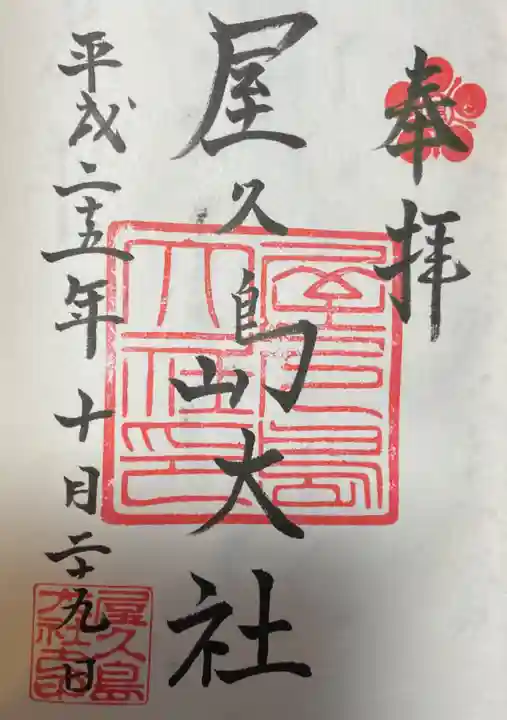 奉拝
屋久島大社
平成二十五年十月二十九日
屋久島大社印
屋久島大社印